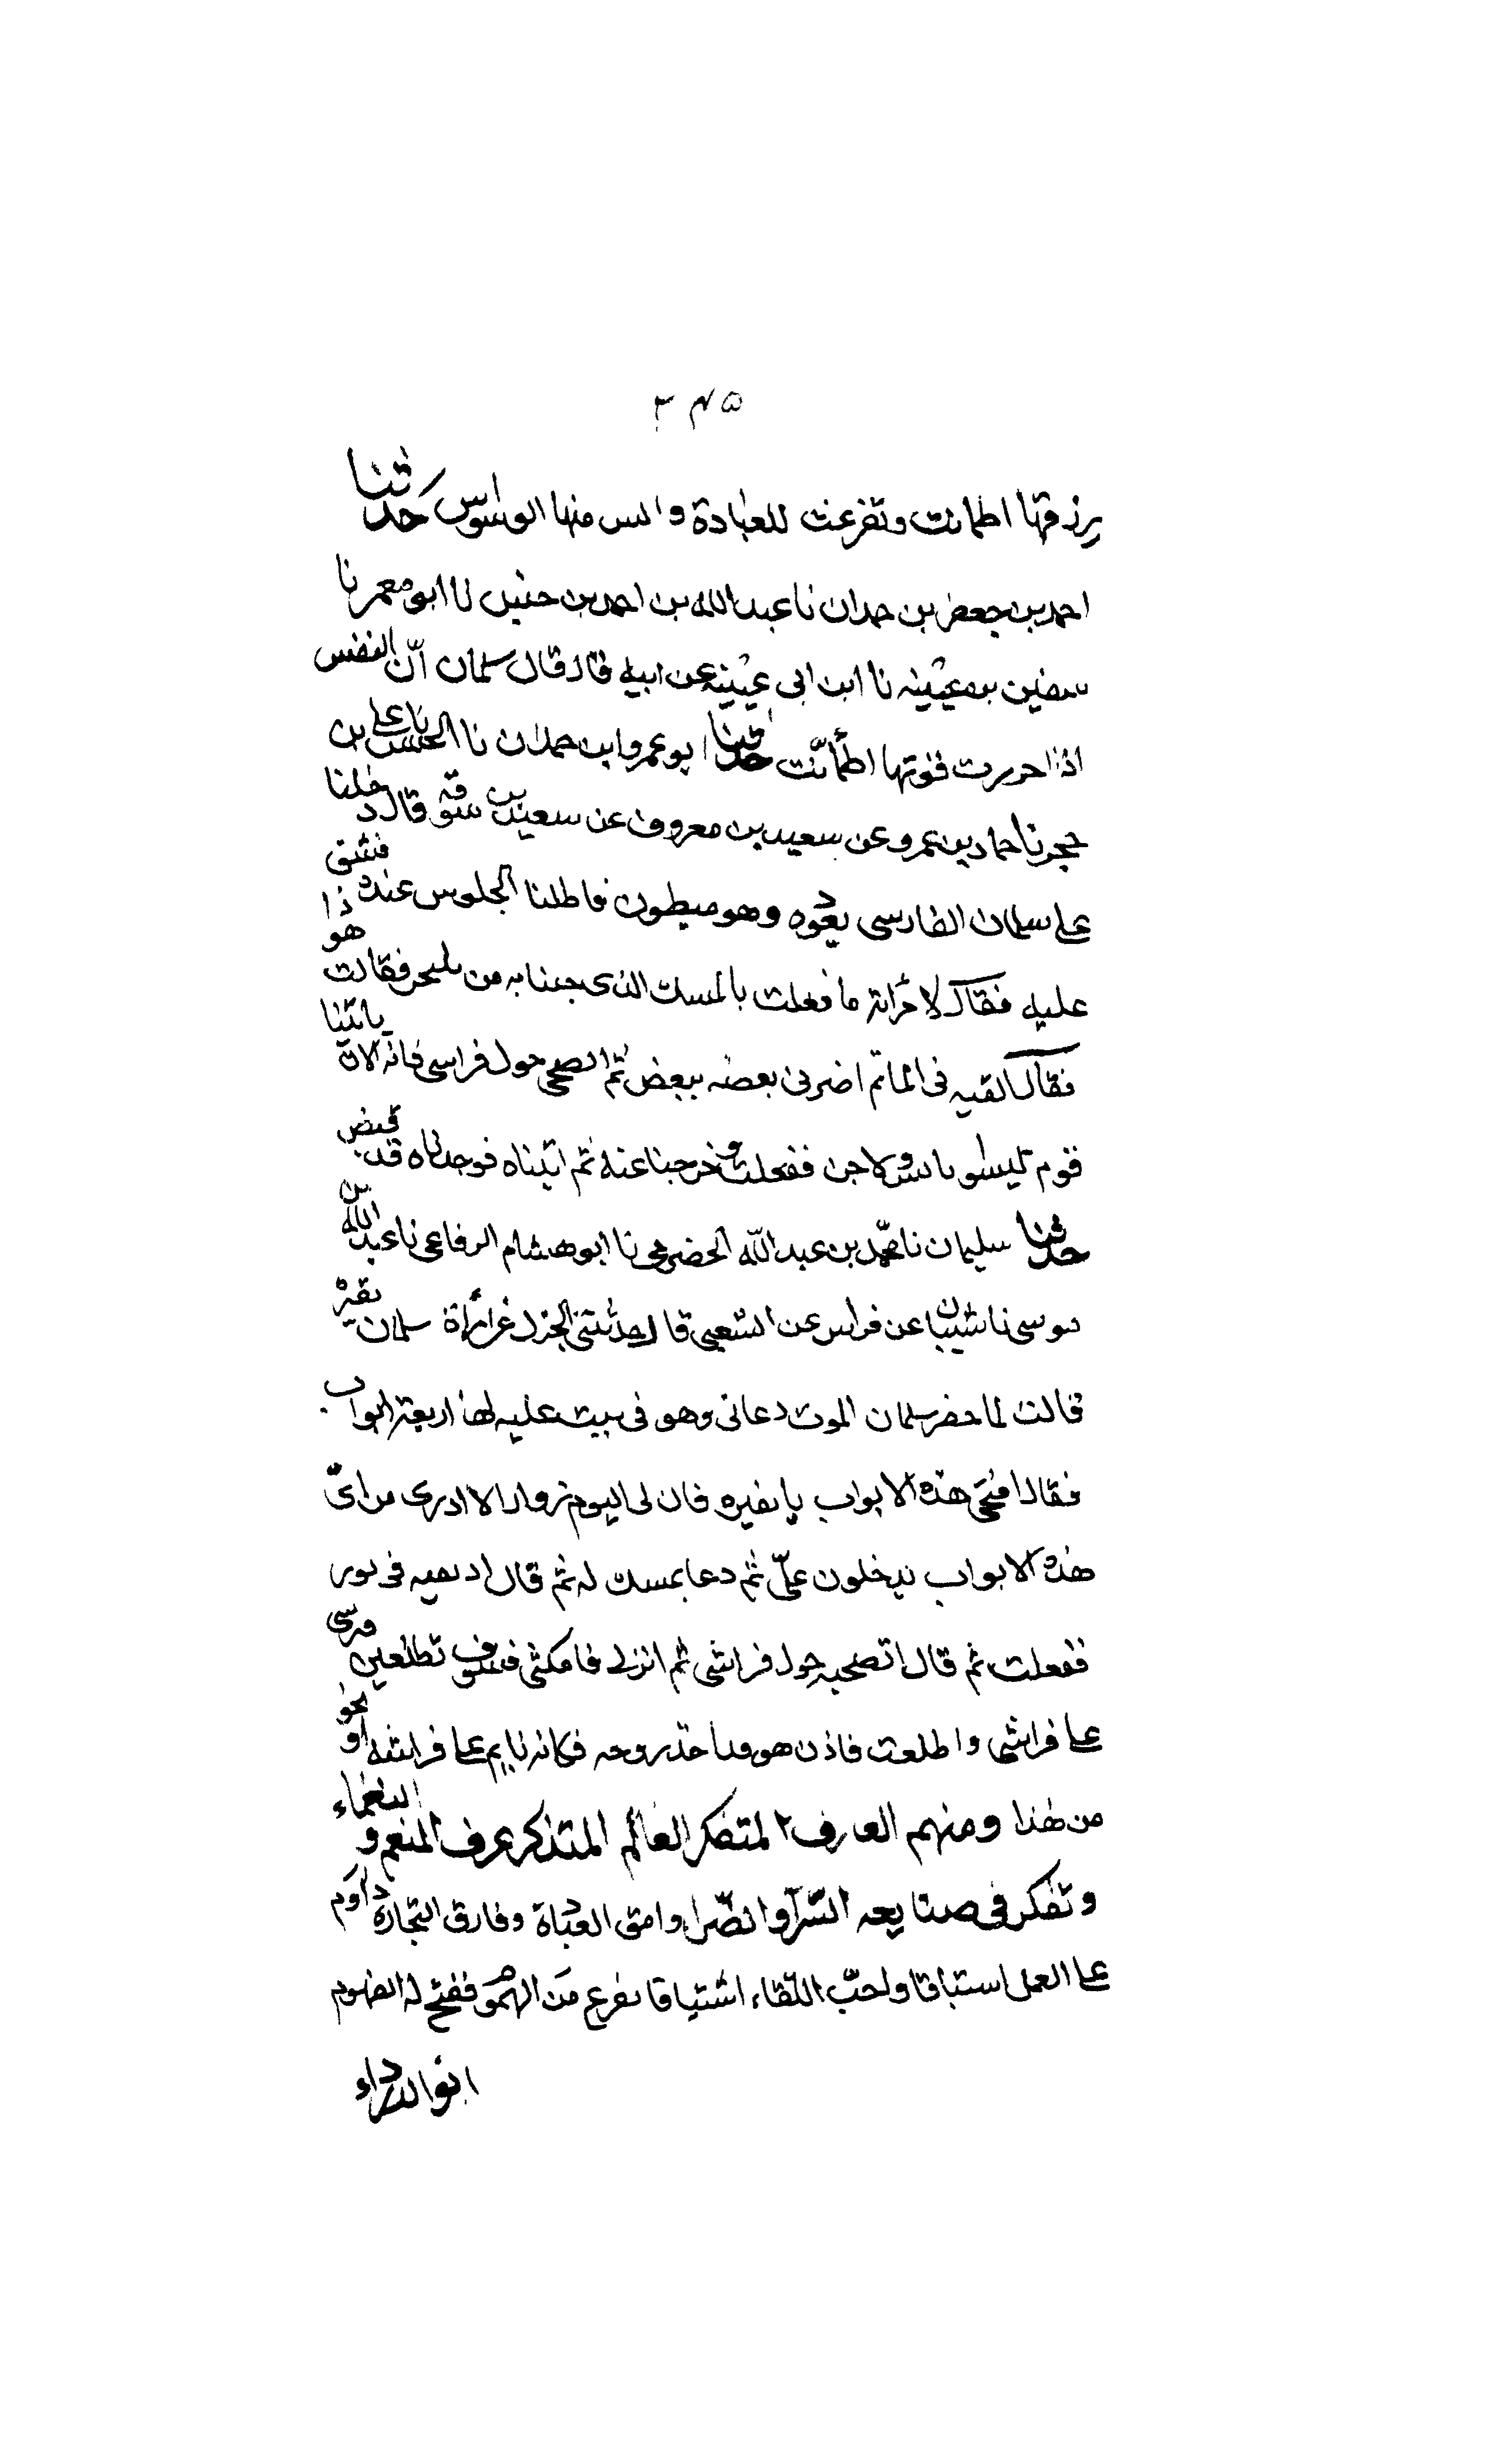 ٣٤٥
رزقها اطمانت وتفرغت للعبادة وايس منها الوسواس حدثنا
احمد بن جعفر بن حمدان نا عبد الله بن احمد بن حنبل نا ابو معمر نا
سفين بن عيينه نا ابن ابى عيينه عن ابيه قال قال سلمان ان النفس
اذا احرزت قوتها اطمأنّت حدثنا ابو عمرو ابن حمدان نا الحسن نا على بن
حجر نا حماد بن عمرو عن سعيد بن معروف عن سعيد بن سوقه قال دخلنا
على سلمان الفارسى نعوده وهو مبطون فاطلنا الجلوس عنده فشق ذا
عليه فقال لامرأته ما فعلت بالمسك الذى جينا به من بلنجر فقالت هو
فقال القيه فى الماء ثم اضربى بعضه ببعض ثم انضحى حول فراشى فانه الان ياتينا
قوم ليسوا بانس ولا جن ففعلت وخرجنا عنه ثم اتيناه فوجدناه قد قبض
حدثنا سليمان نا محمد بن عبد الله الحضرمى نا ابو هشام الرفاعى نا عبد الله بن
موسى نا شيبان عن فراس عن الشعبى قال حدثنى الجزل عن امرأة سلمان بقيره
قالت لما حضر سلمان الموت دعانى وهو فى بيت عليه لها اربعة ابواب
فقال افتحى هذه الابواب يا بقيره فان لى اليوم زوارا لا ادرى من اىّ
هذه الابواب يدخلون علىّ ثم دعا بمسك له ثم قال اديفيه فى تور
ففعلت ثم قال انضحيه حول فراشى ثم انزلى فامكثى فسوف تطلعين فترى
على فراشى واطلعت فاذن هو قد اخذ روحه فكانه نايم على فراشه او نحو
من هذا ومنهم العارف المتفكر العالم المتذكر عرف المنعم و النعماء
وتفكر فى صنايعه السّرآ والضّرا وامق العبادة وفارق التجارة داوم
على العمل استباقا ولحبّ اللّقاء اشتياقا تفرغ من الهموم ففتح له الفهوم
ابو الدرداء